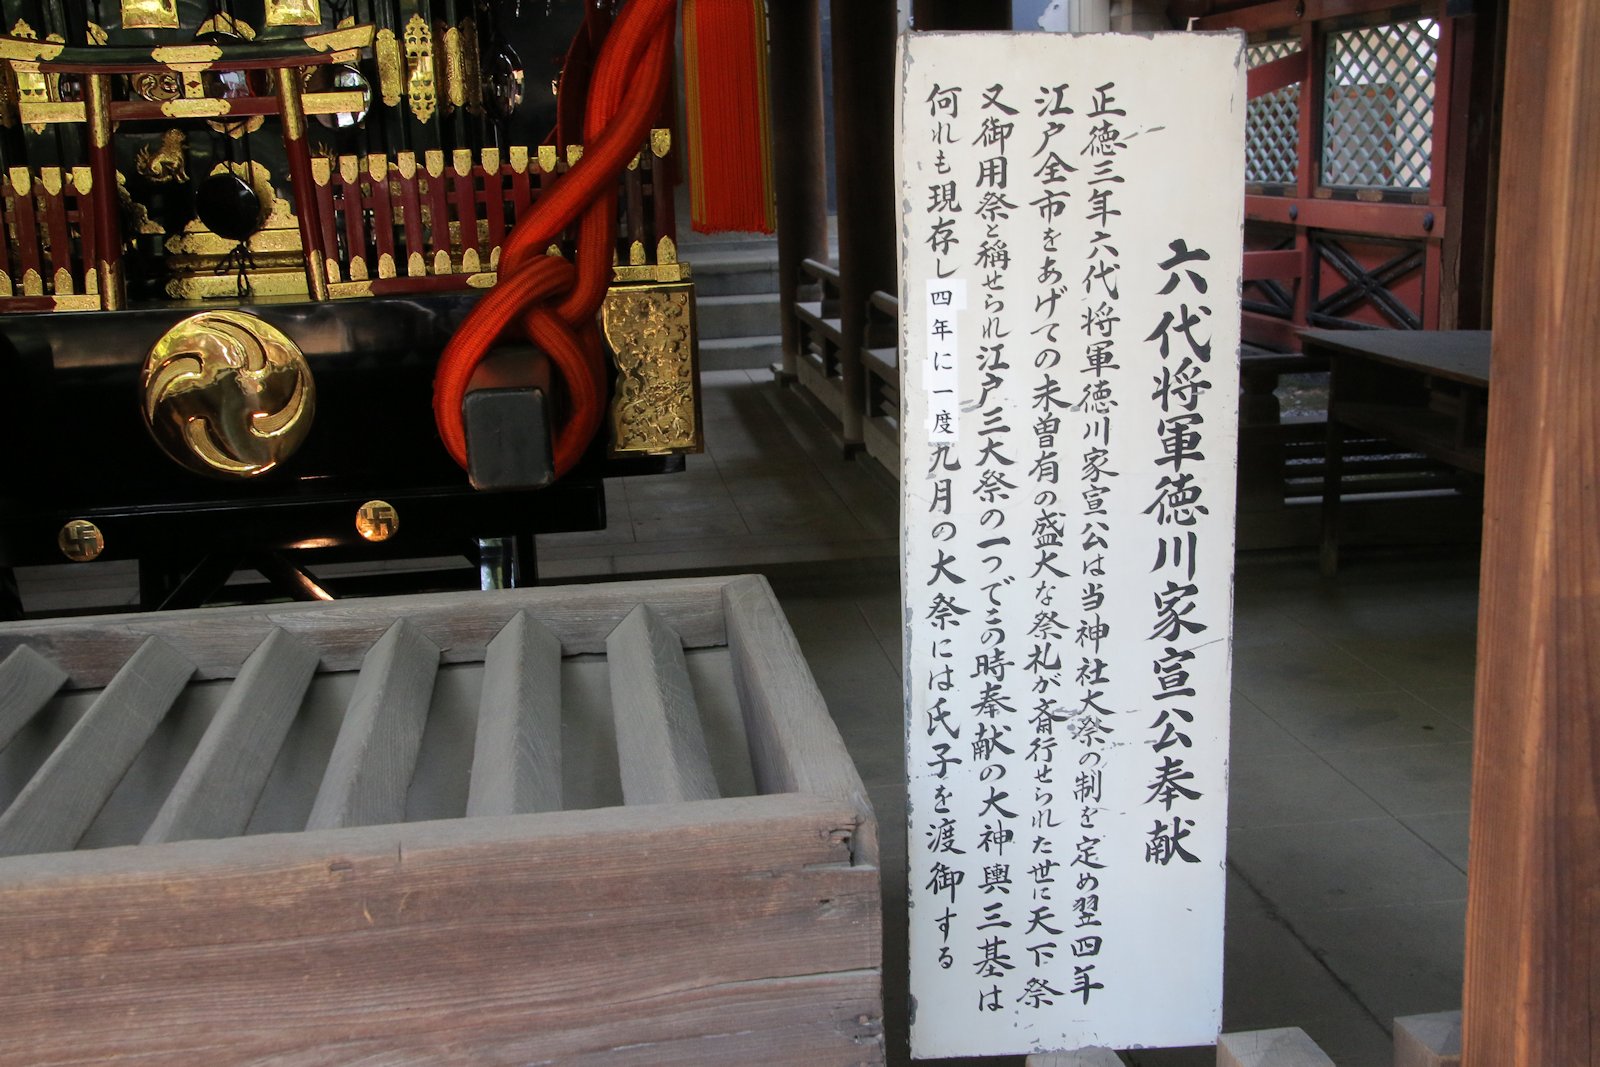 六代将軍徳川家宣公奉献
正徳三年六代将軍徳川家宣公は当神社大祭の制を定め翌四年
江戸全市をあげての未曽有の盛大な祭礼が斎行せられた世に天下祭
又御用祭と稱せられ江戸三大祭の一つでこの時奉献の大神輿三基は
何れも現存し四年に一度九月の大祭には氏子を渡御する